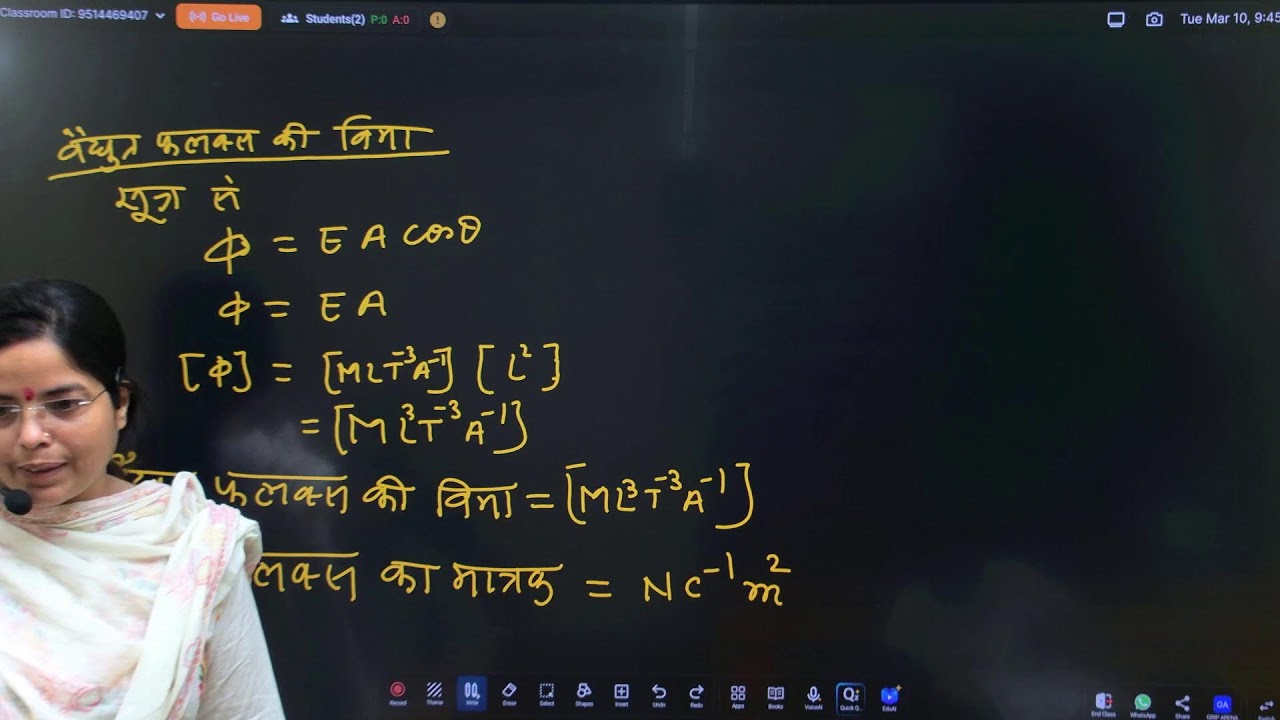 Classroom ID: 9514469407 Go Live Students(2) P:0 A:0 Tue Mar 10, 9:45
वैद्युत फलक्स की विमा
सूत्र से
Φ = E A cosθ
Φ = E A
[Φ] = [MLT⁻³A⁻¹] [L²]
= [ML³T⁻³A⁻¹]
फलक्स की विमा = [ML³T⁻³A⁻¹]
लक्स का मात्रक = NC⁻¹m²
Record Theme Write Eraser Select Shapes Insert Undo Redo Apps Books VoiceAI Quick Q.. EduAI End Class WhatsApp Share GRIP ARENA